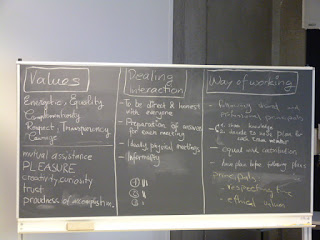 Values
Energetic, Equality
Complementarity
Respect, Transparency
Courage
mutual assistance
PLEASURE
creativity, curiosity
trust
proudness of accomplishm.
Dealing
interaction
- To be direct & honest
with everyone
- Preparation of
for each meeting
- Ideally physical meetings
- Informality
① III
② II
③ I
Way of working
- shared and
professional
share knowledge
to decide to have plans for
each team member
- equal contribution
- plan before
Principals
- respecting time
- ethical values